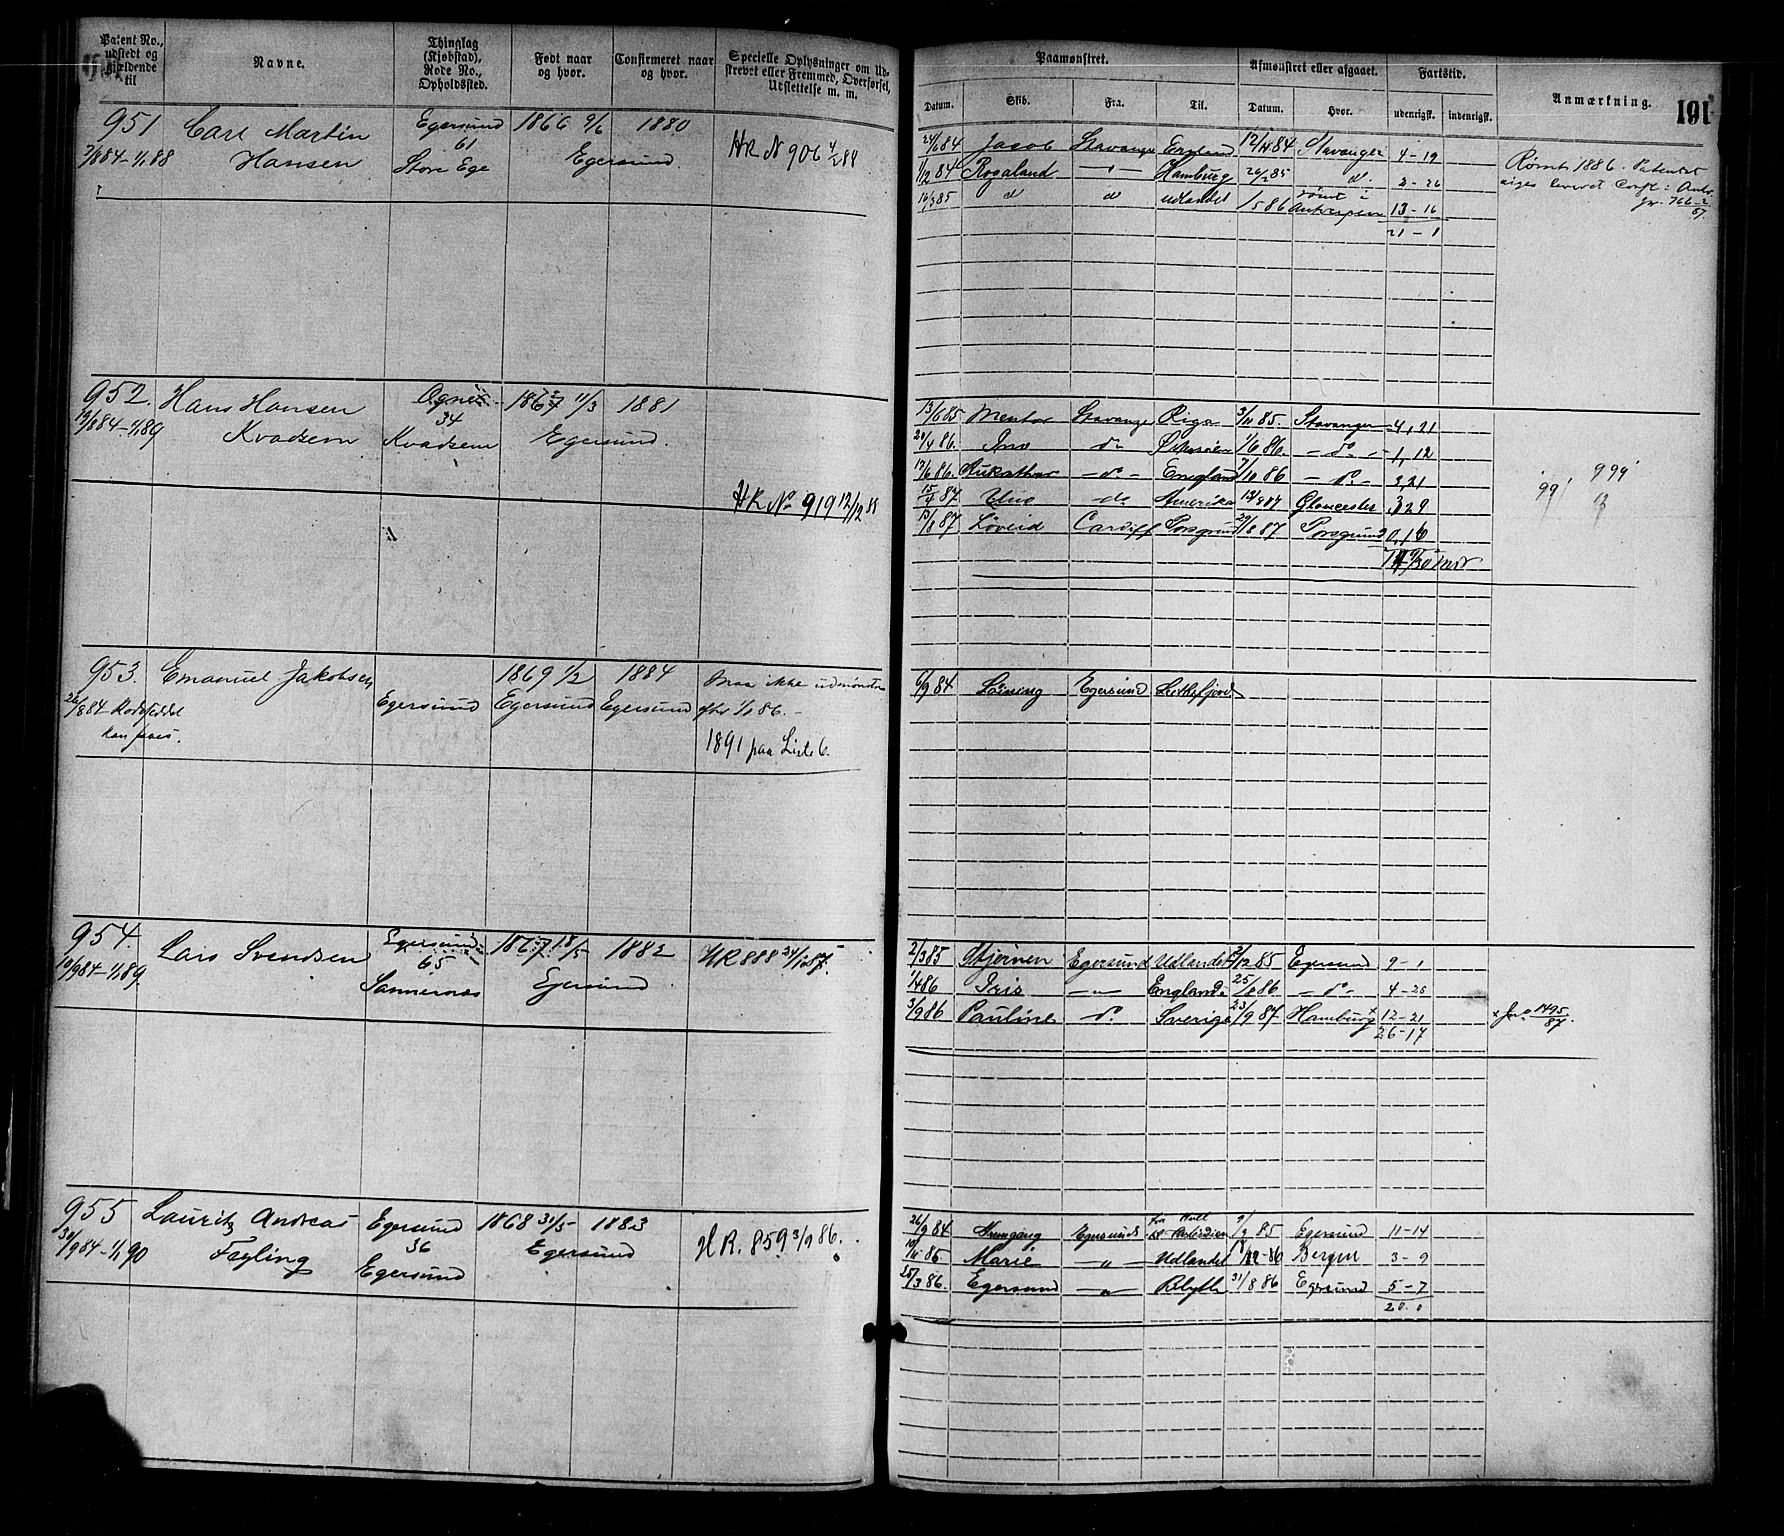 Patent No., udstedt og gjældende til
Navne.
Thinglag (Kjøbstad), Rode No., Opholdssted.
Født naar og hvor.
Confirmeret naar og hvor.
Specielle Oplysninger om Udstrevet eller Fremmed, Overførsel, Udslettelse m. m.
Paamønstret.
Afmønstret eller afgaaet.
Fartstid.
Anmærkning.
191
Datum. Skib. Fra. Til. Datum. Hvor. udenrigsk. indenrigsk.
951 Carl Martin Egersund 1866 9/6 1880
61
Hansen Store Ege Egersund
HR N 906
24/6 84 Jacob Stavanger England 12/11 84 Stavanger 4-19
1/12 84 Rosaland Hamburg 26/2 85 d. 2-26
16/3 85 d d udlandet 1/5 86 rømt i Antverpen 13-16
21-1
Rømt 1886. Patentet
952. Hans Hansen Ogne 1867 11/3 1881
34
19/8 84-1/1 89 Kvadsem Kvadsem Egersund.
HR No 919 12/12 88
13/6 85 Mentor Stavanger Riga 3/11 85. Stavanger 4,21
20/4 86. Ino do Østersøen 1/6 86. - do - 1,12
17/6 86. England 7/10 86 - do - 3 21
15/4 87 - do Amerika Gloucester 3 29
Løveid Cardiff Porsgrund 29/8 87 Porsgrund 0,16
991 999
953. Emanuel Jakobsen 1869 1/2 1884 Maa ikke udmønstres
26/8 84 Rodeseddel Egersund Egersund Egersund efter 1/1 86. -
1891 paa Liste 6.
6/9 84 Egersund
954. Lars Svendsen Egersund 1867 18/5 1882 HR 888 24/10 87.
65
10/9 84-1/1 89. Sannernes Egersund
2/3 85 Bjørnen Egersund Udlandet 2/12 85 Egersund 9-1
1/4 86 Iris England 25/8 86 - do - 4-25
3/9 86 Pauline do Sverige 23/9 87 Hamburg x 12-21
26-17
x Jnr 1495/87.
955 Lauritz Andreas Egersund 1868 31/5 1883
36
30/9 84-1/1 90 Fayling Egersund Egersund
HR. 859 3/9 86.
26/9 84 Fremgang Egersund fra Hull 9/9 85 Egersund 11-14
Marie Udlandet Bergen 3-9
25/3 86. Egersund Blyth 31/8 86 Egersund 5-7
20. 0